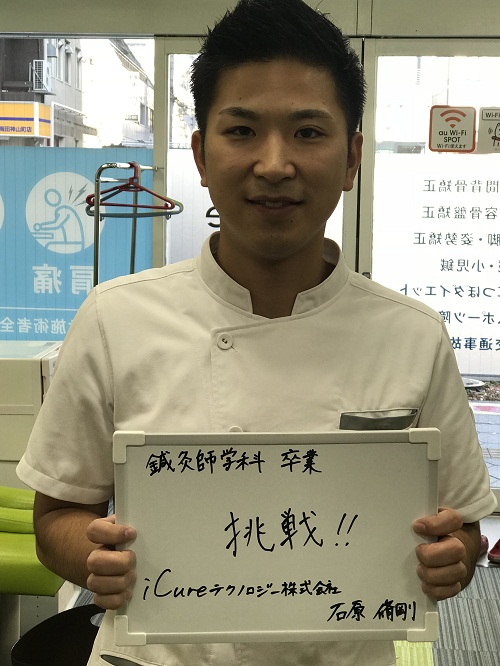 梅田神山町店
au Wi-Fi
SPOT
Wi-Fi使えます
Wi-Fi
肩痛
施術者全
背骨矯正
容骨盤矯正
脚・姿勢矯正
・小児鍼
つぼダイエット
ポーツ障
交通事故
鍼灸師学科 卒業
挑戦!!
iCureテクノロジー株式会社
石原 脩剛